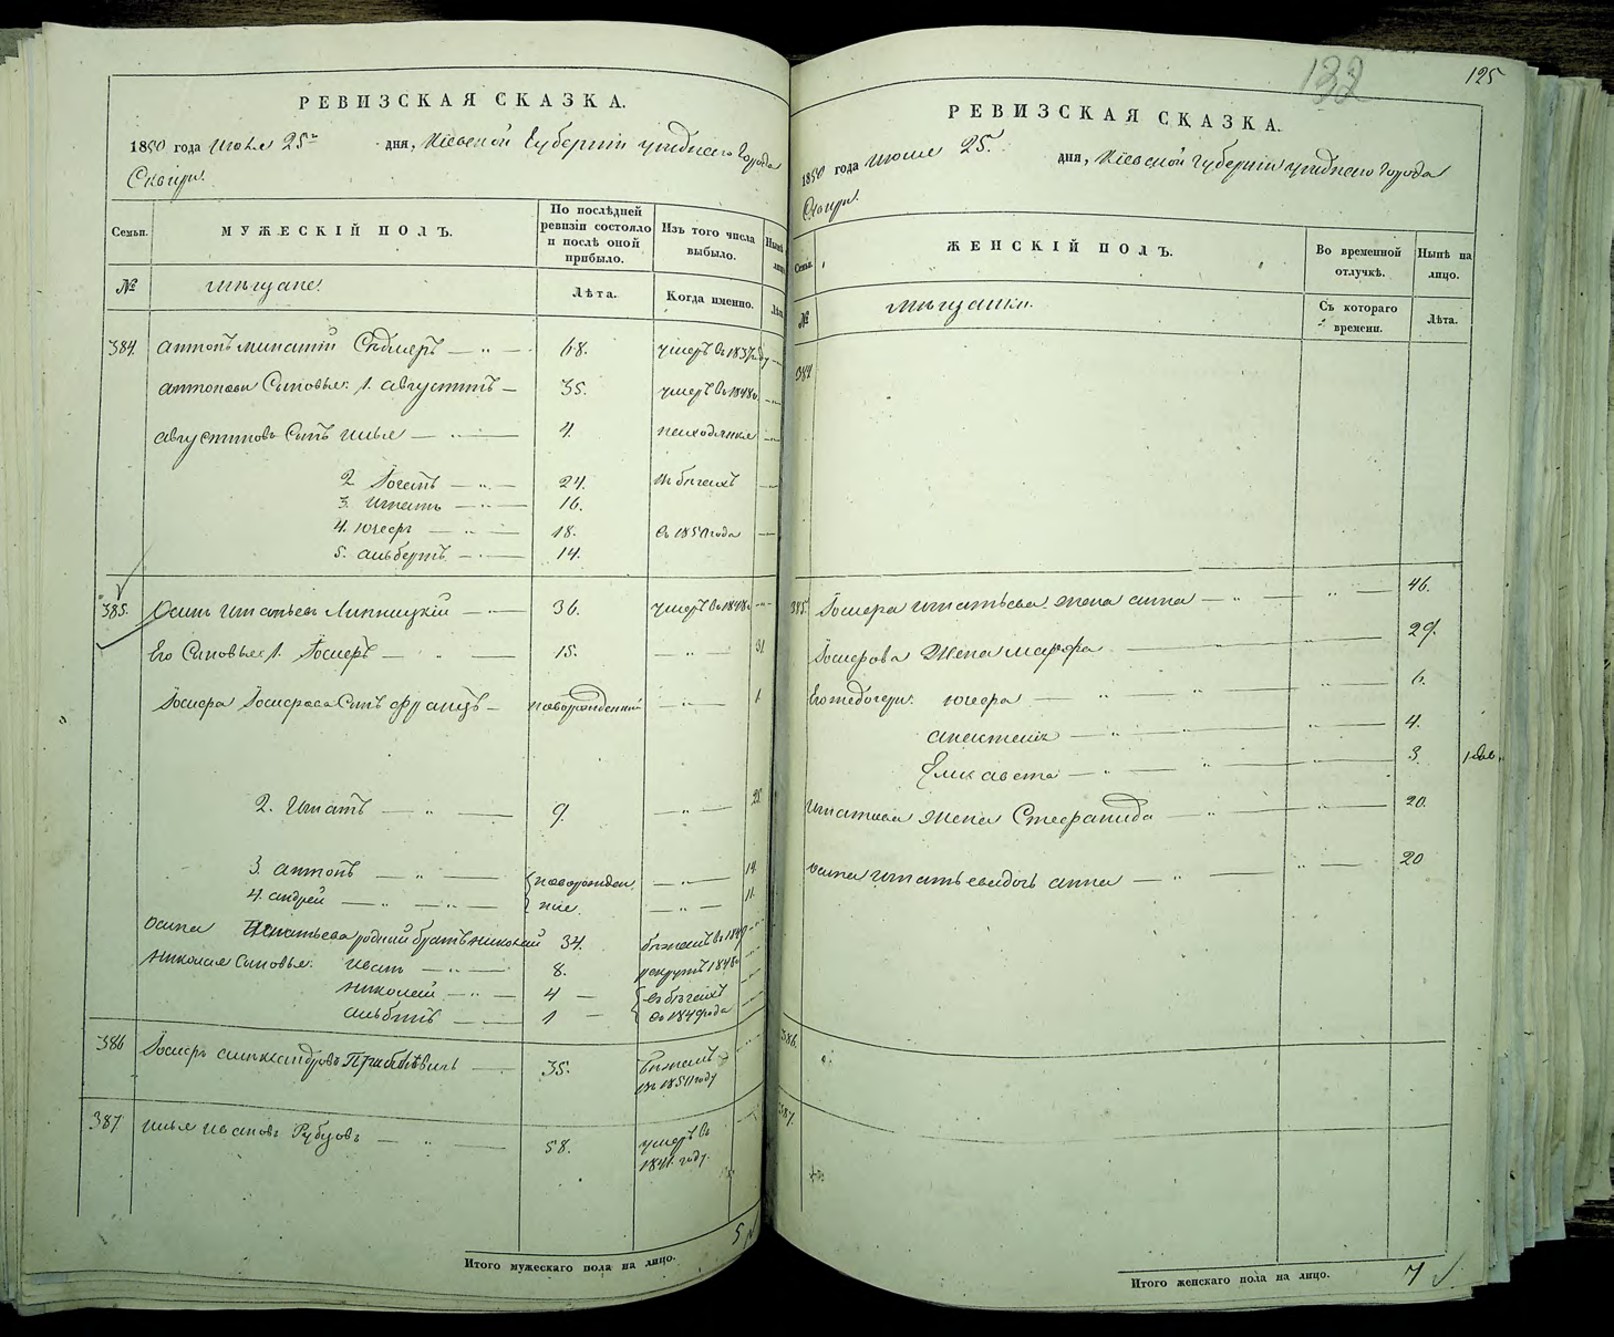 РЕВИЗСКАЯ СКАЗКА.
1850 года Июня 25 дня, Кіевской Губерніи уѣзднаго Города
Сквиры.
Семьи. МУЖЕСКІЙ ПОЛЪ. По послѣдней ревизіи состояло и послѣ оной прибыло. Изъ того числа выбыло. Нынѣ на лицо.
№ мѣщане. Лѣта. Когда именно. Лѣта.
384. Антонъ Игнатій 68. умеръ въ 1837 году
Антоновы Сыновья: 1. Августинъ 35. умеръ въ 1848 г.
Августинов Сынъ Илья 4.
2. 24. въ бегахъ
3. Игнатъ 16.
4. Юзефъ 18. съ 1850 года
5. Альбертъ 14.
385. Осипъ Игнатьевъ Липницкій 36. умеръ въ 1848
Его Сыновья: 1. Іосифъ 15. 31
Іосифа Іосифова Сынъ Францъ новорожденный 1
2. Игнатъ 9. 25
3. Антонъ новорожден 14.
4. Андрей ные. 11.
Осипа Игнатьева родный братъ Николай 34. бежалъ въ 1849
Николая Сыновья: Иванъ 8. рекрутъ 1848
Николай 4 въ бегахъ
1 съ 1849 года
386 Іосифъ Александровъ 35. Бежалъ въ 1850 году
387 Илья Ивановъ Рубцовъ 58. умеръ въ 1841. году.
Итого мужескаго пола на лицо. 5
132
125
РЕВИЗСКАЯ СКАЗКА.
1850 года Июня 25. дня, Кіевской Губерніи уѣзднаго Города
Сквиры.
Семьи. ЖЕНСКІЙ ПОЛЪ. Во временной отлучкѣ. Нынѣ на лицо.
№ мѣщанки. Съ котораго времени. Лѣта.
384
385. Іосифа Игнатьева Жена Анна 46.
Іосифова Жена Марфа 29.
Его же дочери: Юзефа 6.
4.
Елисавета 3.
Игнатьева Жена Стефанида 20.
Осипа Игнатьева дочь Анна 20
386.
387.
Итого женскаго пола на лицо. 7